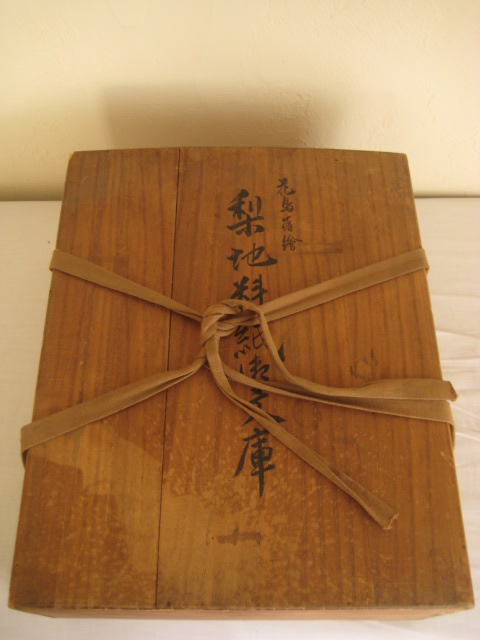 花鳥蒔繪
梨地料紙文庫